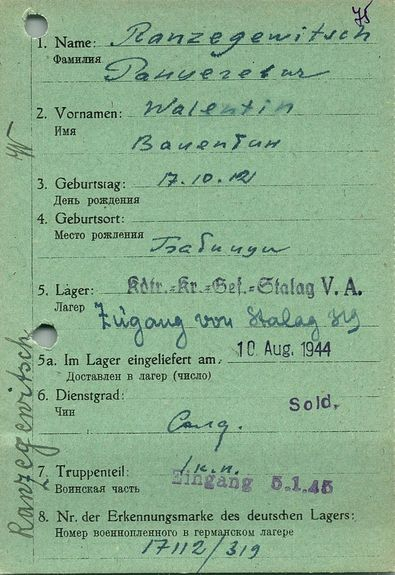 75
1. Name: Ranzegewitsch
Фамилия
Ранцегевич
2. Vornamen: Walentin
Имя
Валентин
3. Geburtstag: 17.10.12
День рождения
4. Geburtsort:
Место рождения
5. Lager: Kdtr.-Kr.-Gef.-Stalag V. A.
Лагер
Zugang von Stalag 319
5a. Im Lager eingeliefert am: 10 Aug. 1944
Доставлен в лагер (число)
6. Dienstgrad: Sold.
Чин
Салд.
7. Truppenteil:
Воинская часть
Eingang 5.1.45
8. Nr. der Erkennungsmarke des deutschen Lagers:
Номер военнопленного в германском лагере
17112/319
Ranzegewitsch